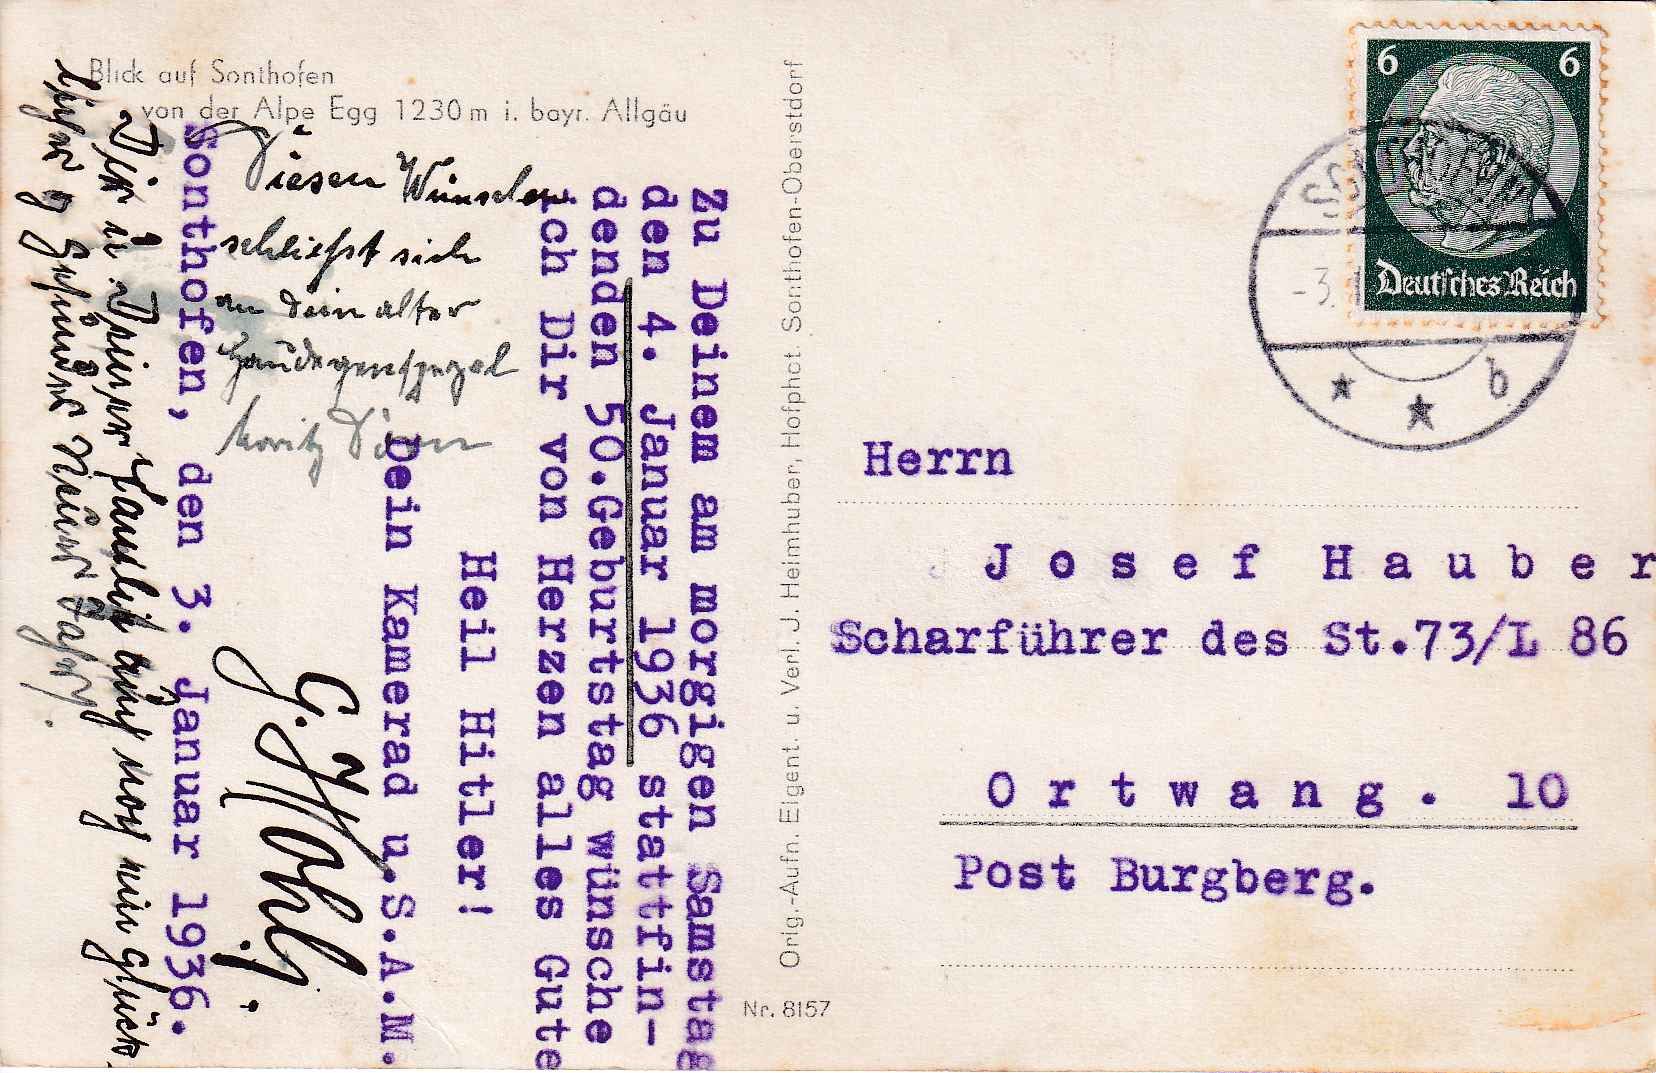 Blick auf Sonthofen
von der Alpe Egg 1230 m i. bayr. Allgäu
Sonthofen, den 3. Januar 1936.
Zu Deinem am morgigen Samstag
den 4. Januar 1936 stattfin-
denden 50.Geburtstag wünsche
ich Dir von Herzen alles Gute
Heil Hitler!
Dein Kamerad u.S.A.M.
Diesen Wünschen
schließt sich
an Dein alter
Moritz
Dir u. Deiner Familie auch noch ein glück
Neues Jahr.
Orig.-Aufn. Eigent. u. Verl. J. Heimhuber, Hofphot. Sonthofen-Oberstdorf
Nr. 8157
6 6
Deutsches Reich
-3.
b
Herrn
Josef Hauber
Scharführer des St.73/L 86
Ortwang. 10
Post Burgberg.